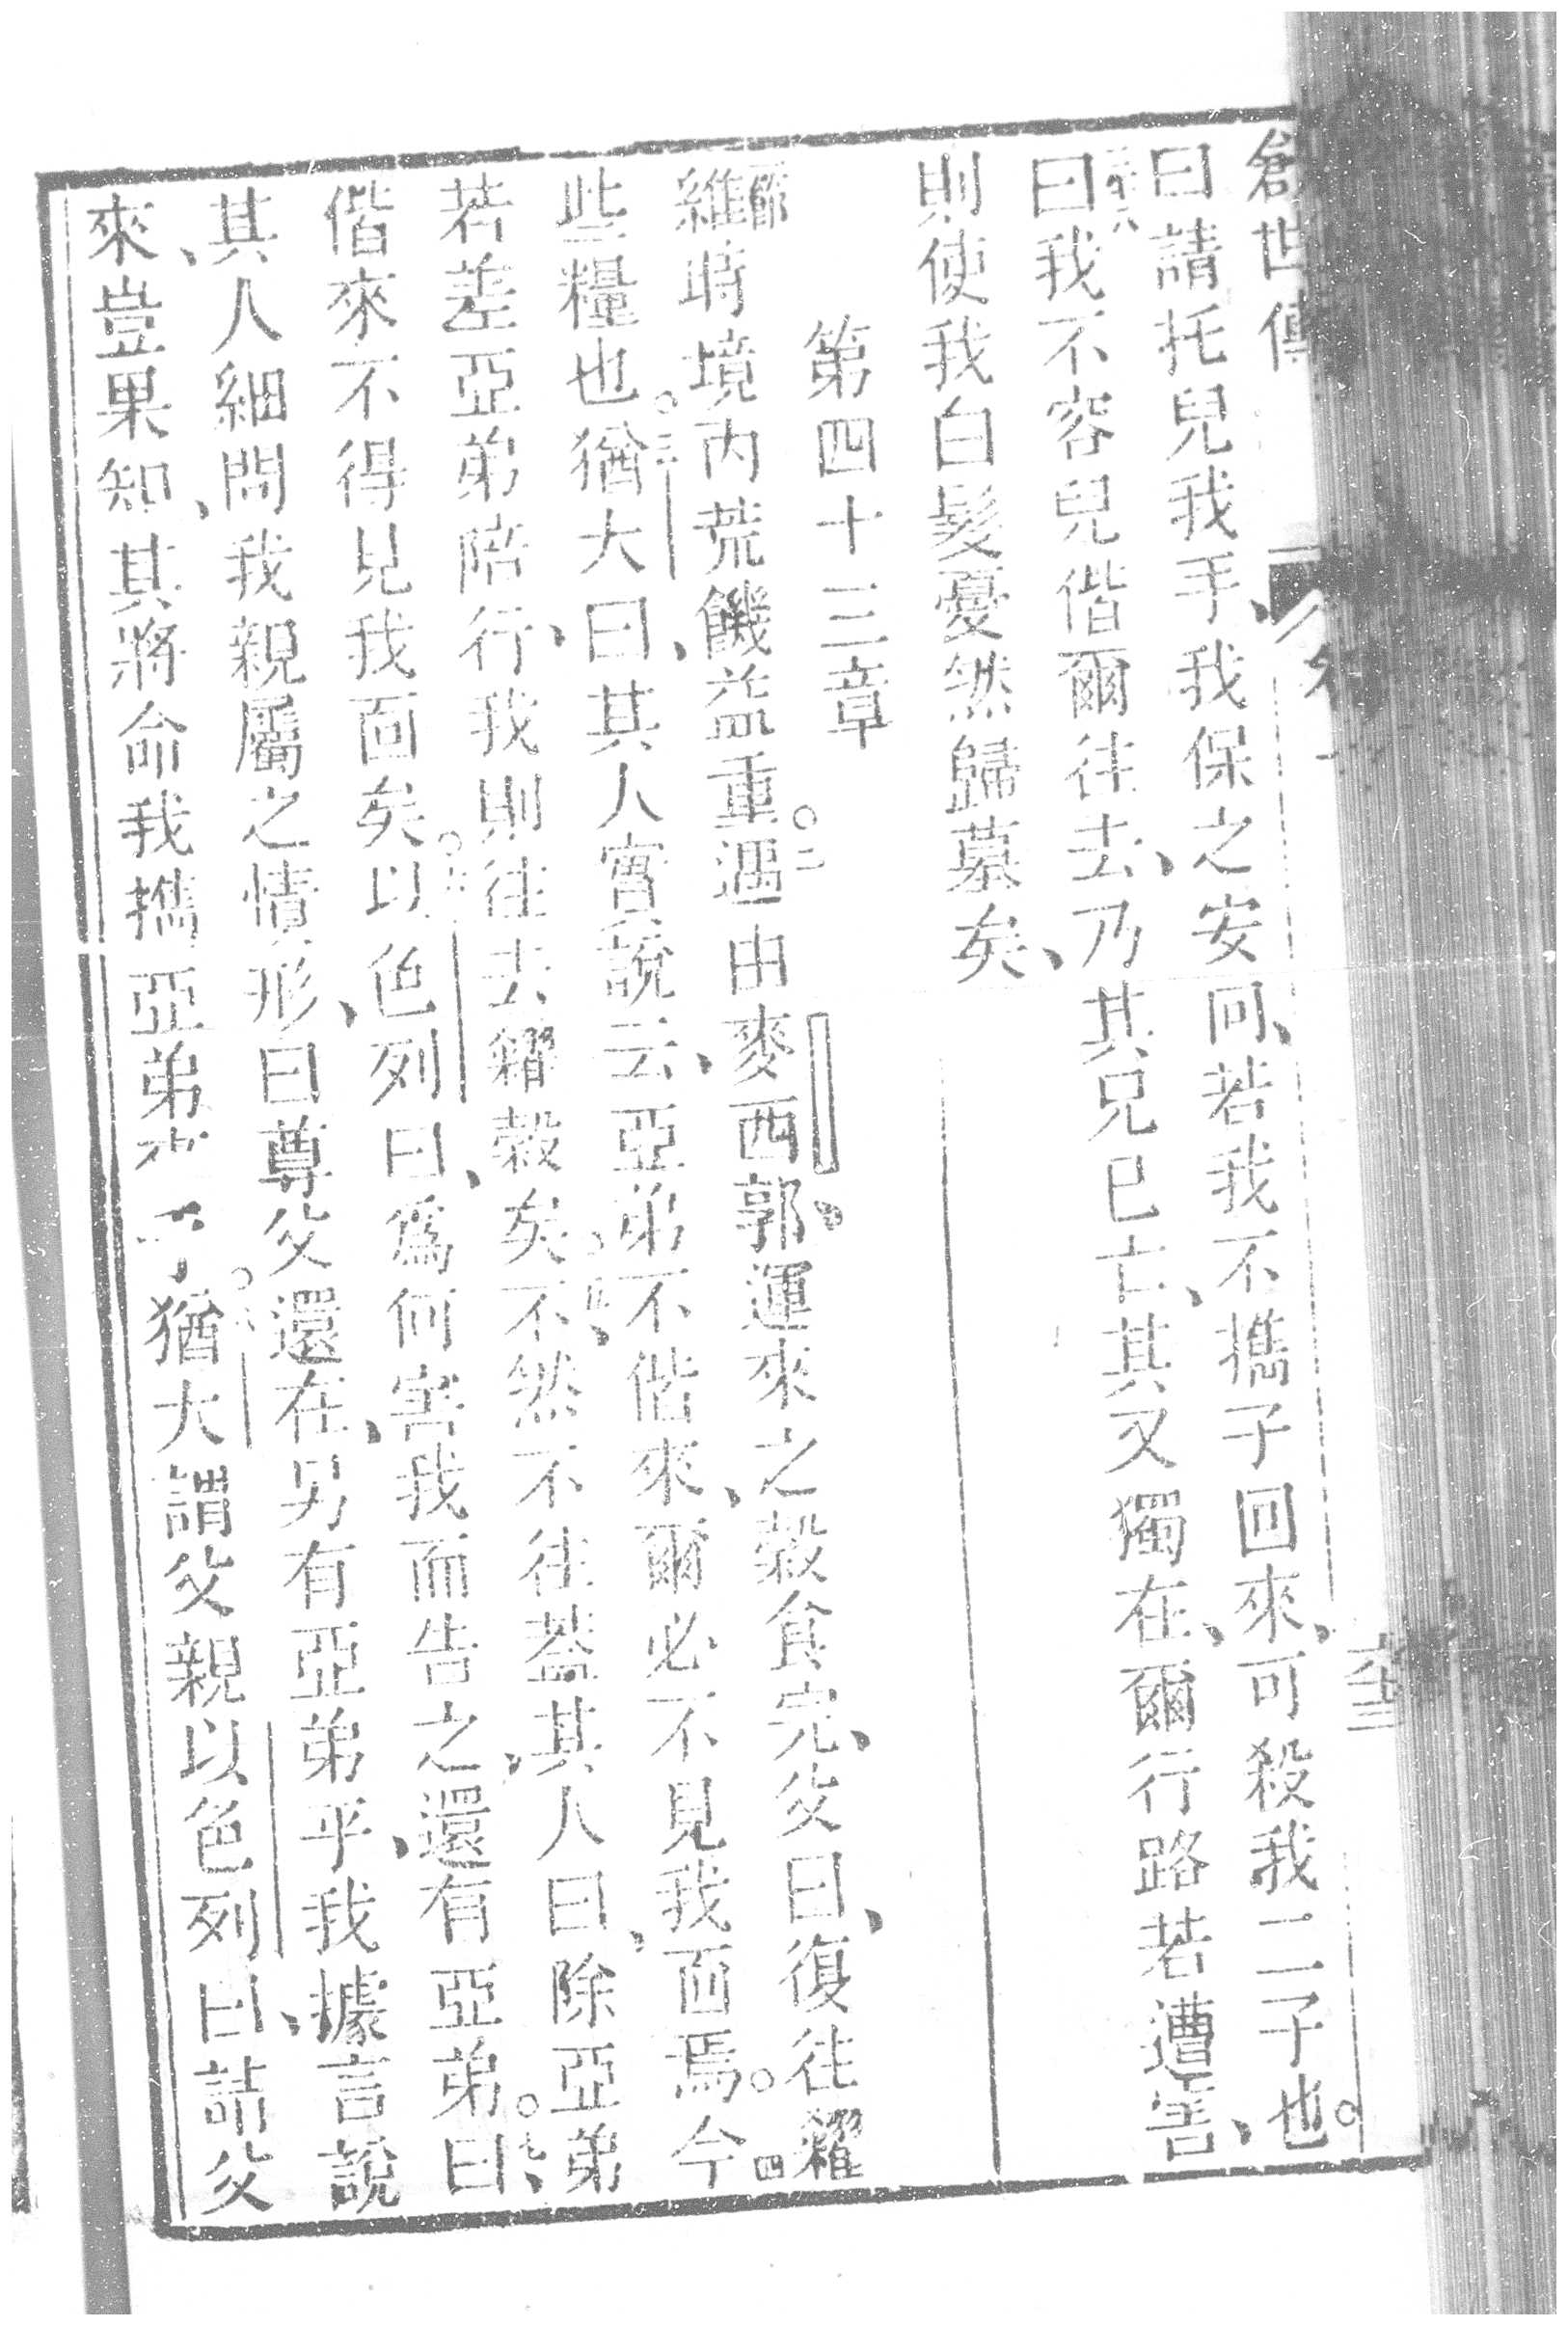 創世傳
六十三
曰請托兒我手、我保之安囘、若我不攜子回來、可殺我二子也。
曰我不容兒偕爾往去、乃其兄已亡、其又獨在、爾行路若遭害、
則使我白髮憂然歸墓矣、
第四十三章
節維時境內荒饑益重。二遇由麥西郭運來之穀食完、父曰、復往糴
些糧也。三猶大曰、其人實說云、亞弟不偕來、爾必不見我面焉。四今
若差亞弟陪行、我則往去糴穀矣。不然不往、蓋其人曰、除亞弟
偕來不得見我面矣。六以色列曰、爲何害我而告之、還有亞弟。七曰、
其人細問我親屬之情形、曰尊父還在、另有亞弟乎、我據言說
來、豈果知、其將命我攜亞弟。猶大謂父親以色列曰、請父